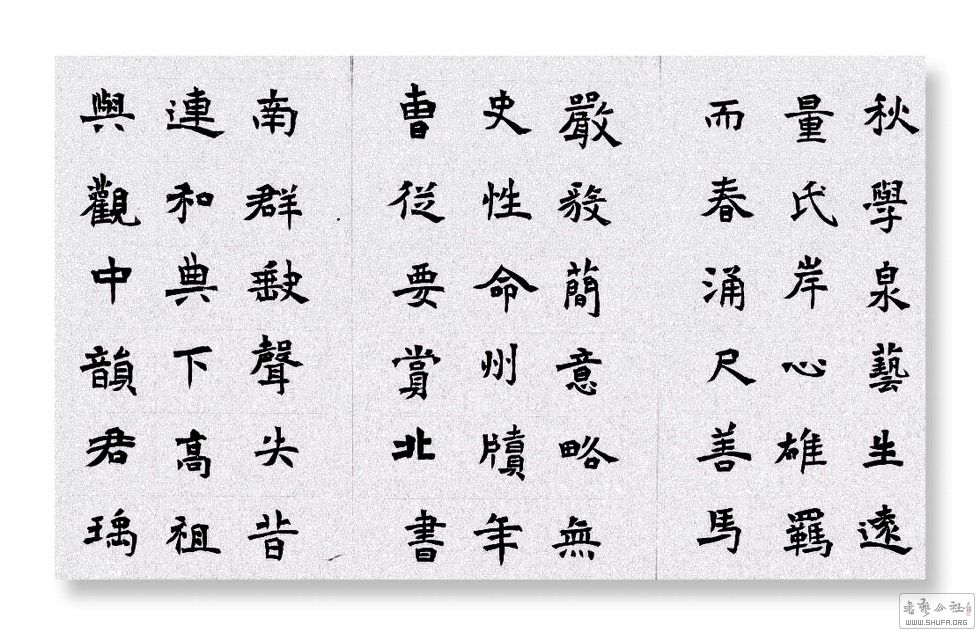 秋學泉藝生遠
量氏岸心雄羈
而春涌尺善馬
嚴發簡意略無
史性命州牘年
曹從要賞北書
南群缺聲尖昔
連和典下高祖
與觀中韻君瑀
WWW.SHUFA.ORG